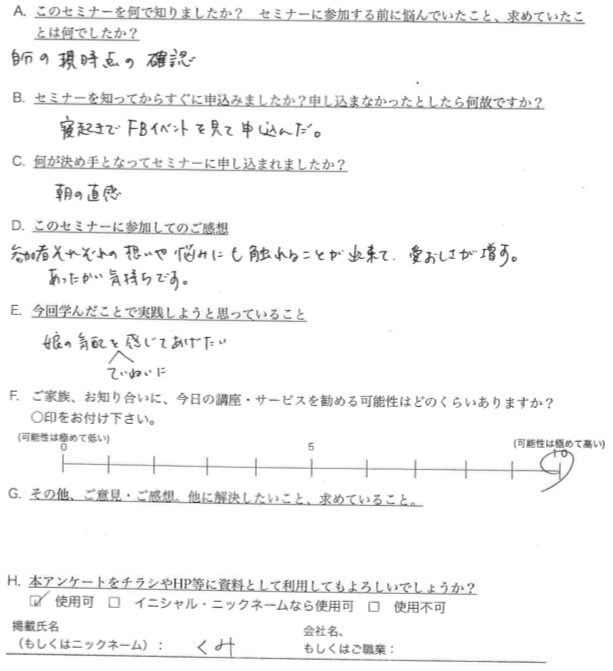 A. このセミナーを何で知りましたか？ セミナーに参加する前に悩んでいたこと、求めていたこ
とは何でしたか？
自分の現時点の確認
B. セミナーを知ってからすぐに申込みましたか？申し込まなかったとしたら何故ですか？
寝起きでFBイベントを見て申し込んだ。
C. 何が決め手となってセミナーに申し込まれましたか？
朝の直感
D. このセミナーに参加してのご感想
参加者それぞれの想いや悩みにも触れることが出来て、愛おしさが増す。
あったかい気持ちです。
E. 今回学んだことで実践しようと思っていること
娘の気配を感じてあげたい
ていねいに
F. ご家族、お知り合いに、今日の講座・サービスを勧める可能性はどのくらいありますか？
〇印をお付け下さい。
(可能性は極めて低い) (可能性は極めて高い)
0 5 10
G. その他、ご意見・ご感想。他に解決したいこと、求めていること。
H. 本アンケートをチラシやHP等に資料として利用してもよろしいでしょうか？
☑ 使用可 □ イニシャル・ニックネームなら使用可 □ 使用不可
掲載氏名 会社名、
（もしくはニックネーム）： くみ もしくはご職業：